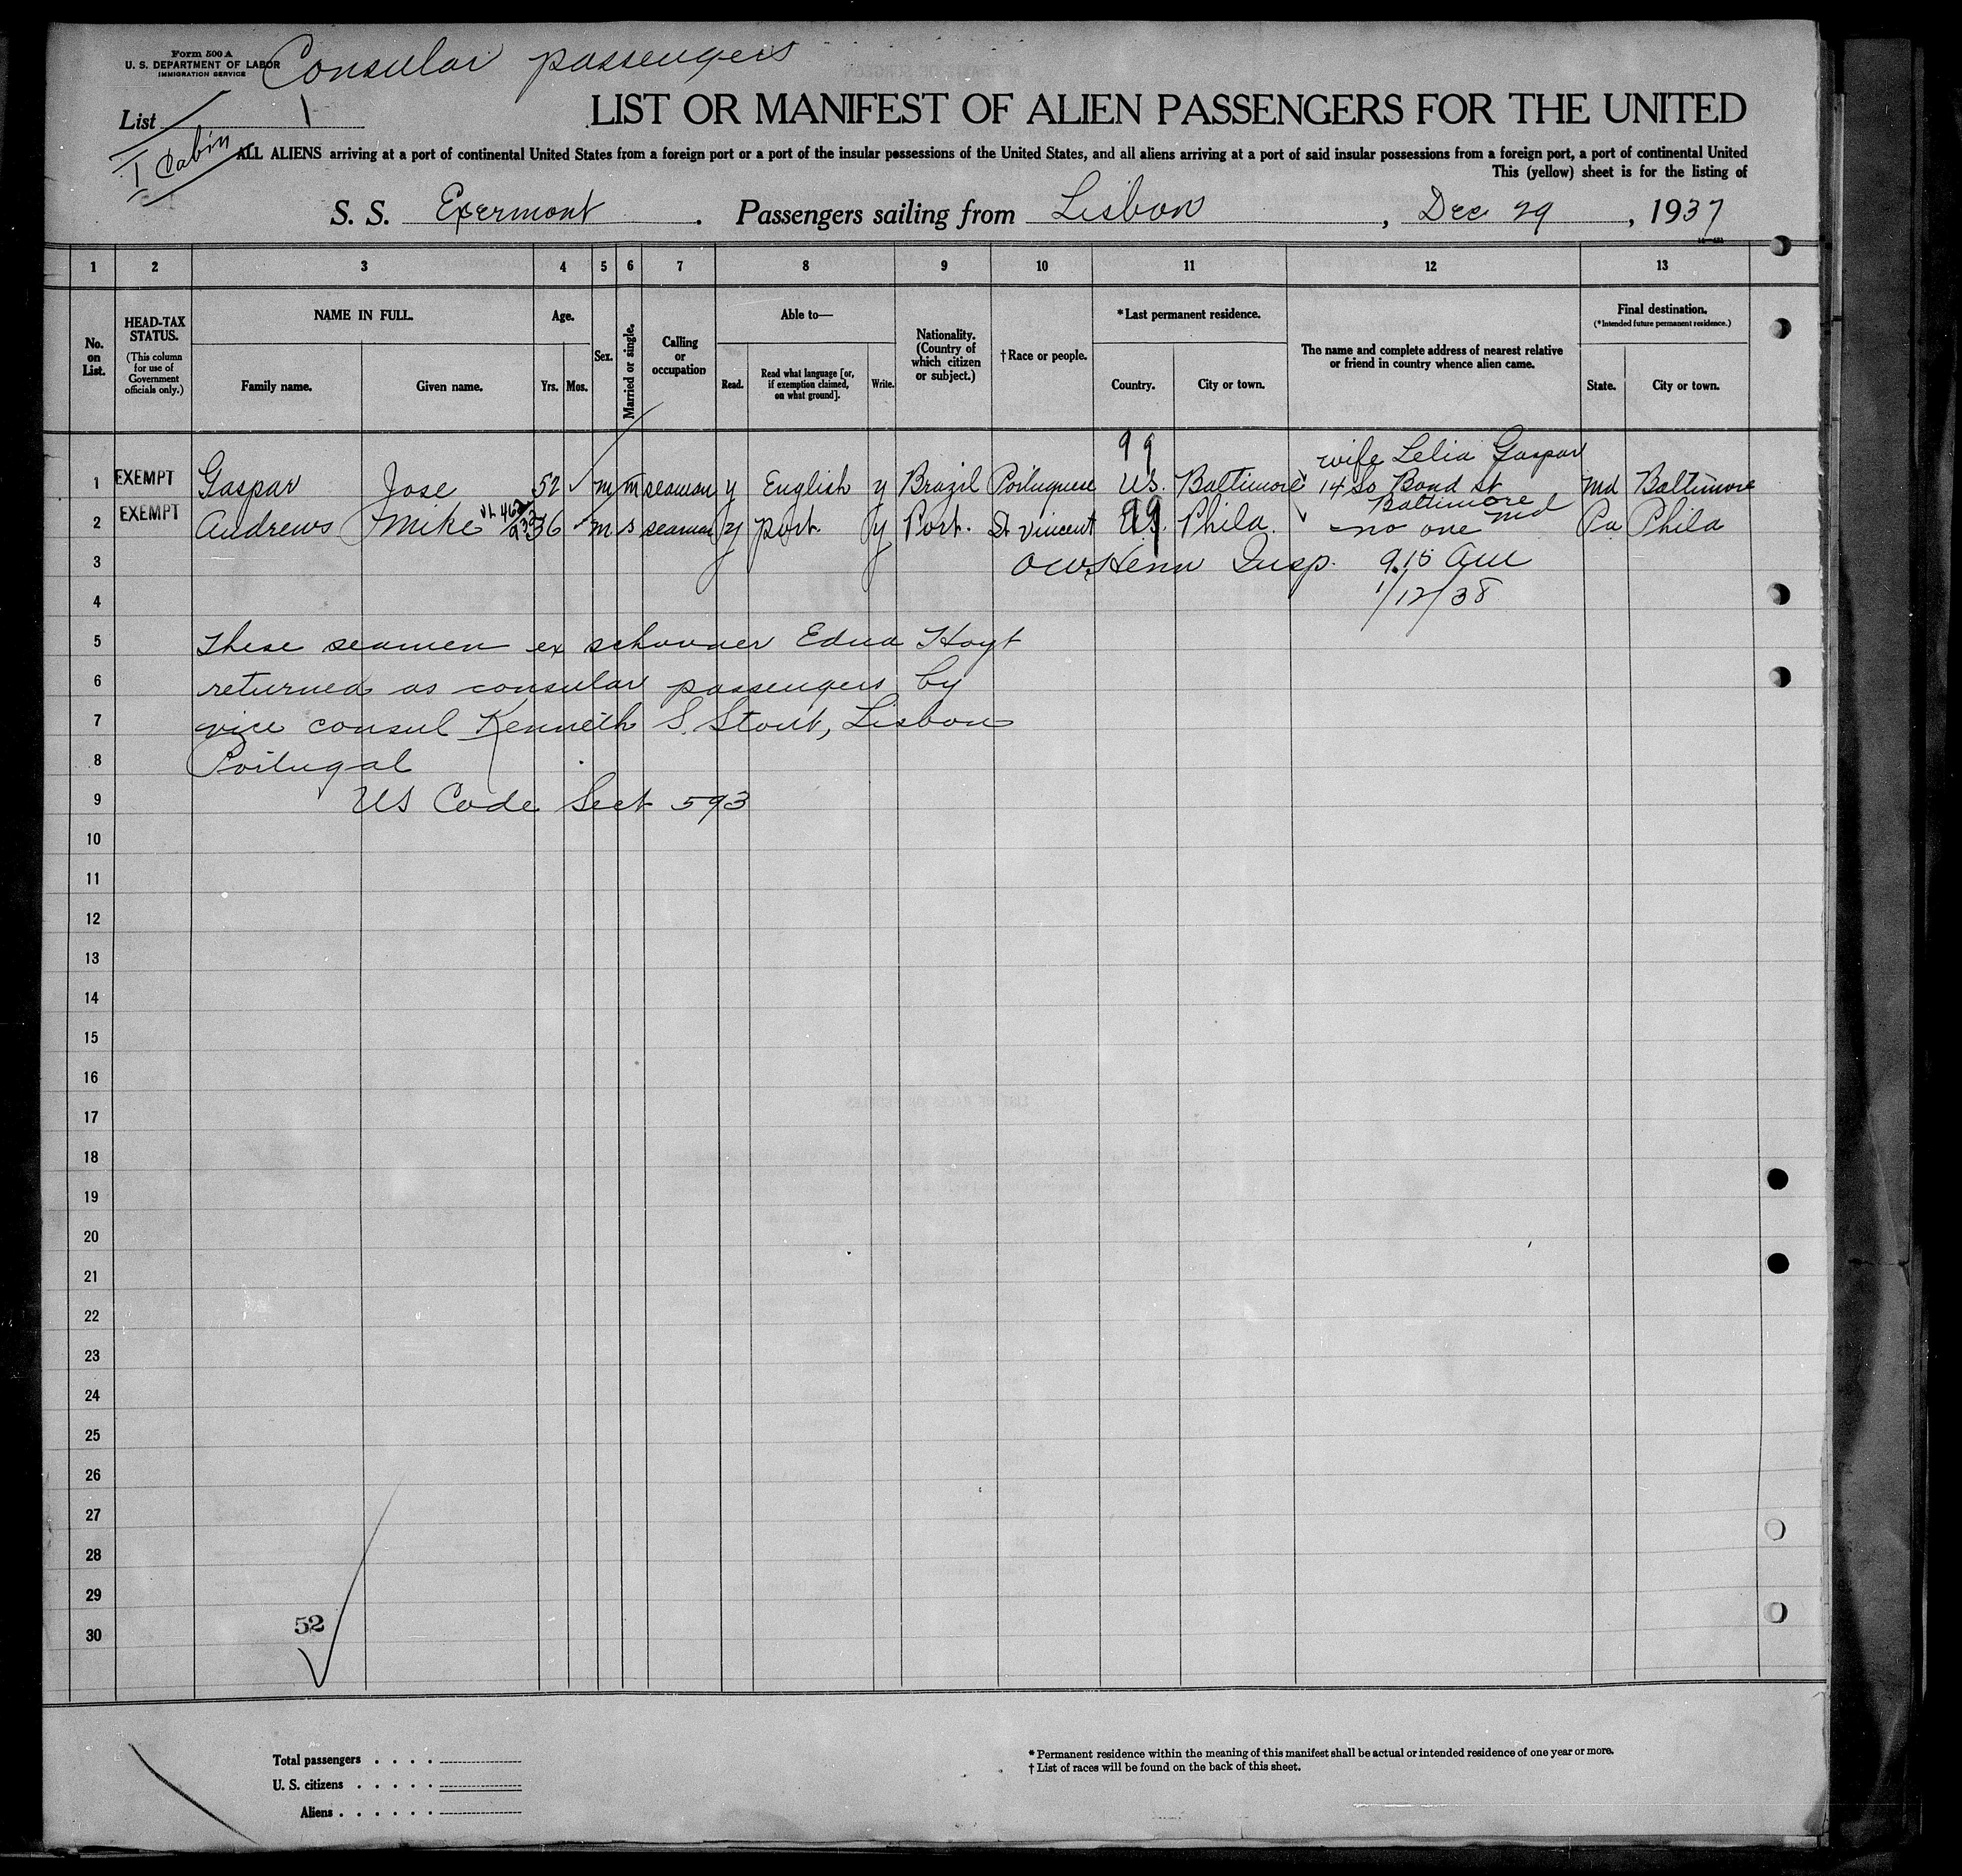 Form 500 A
U. S. DEPARTMENT OF LABOR
IMMIGRATION SERVICE
Consular passengers
List 1
I Cabin
LIST OR MANIFEST OF ALIEN PASSENGERS FOR THE UNITED
ALL ALIENS arriving at a port of continental United States from a foreign port or a port of the insular possessions of the United States, and all aliens arriving at a port of said insular possessions from a foreign port, a port of continental United
This (yellow) sheet is for the listing of
S. S. Exermont . Passengers sailing from Lisbon , Dec 29 , 1937
1 2 3 4 5 6 7 8 9 10 11 12 13
No. on List.
HEAD-TAX STATUS.
(This column for use of Government officials only.)
NAME IN FULL.
Family name. Given name.
Age.
Yrs. Mos.
Sex.
Married or single.
Calling or occupation
Able to—
Read. Read what language [or, if exemption claimed, on what ground]. Write.
Nationality. (Country of which citizen or subject.)
† Race or people.
* Last permanent residence.
Country. City or town.
The name and complete address of nearest relative or friend in country whence alien came.
Final destination.
(* Intended future permanent residence.)
State. City or town.
99
wife Lelia Gaspar
1 EXEMPT Gaspar Jose 52 m m seaman y English y Brazil Portuguese US. Baltimore 14 So Bond St Md Baltimore
Baltimore Md
2 EXEMPT Andrews Mike 36 m s seaman y port. y Port. St Vincent U.S. 99 Phila. no one Pa Phila
3 Insp. 9.15 am
4 1/12/38
5 These seamen ex schooner Edna Hoyt
6 returned as consular passengers by
7 vice consul Kenneth S. Stout, Lisbon
8 Portugal
9 US Code Sect 593
10
11
12
13
14
15
16
17
18
19
20
21
22
23
24
25
26
27
28
29
30
52
Total passengers . . . .
U. S. citizens . . . . .
Aliens . . . . . .
* Permanent residence within the meaning of this manifest shall be actual or intended residence of one year or more.
† List of races will be found on the back of this sheet.